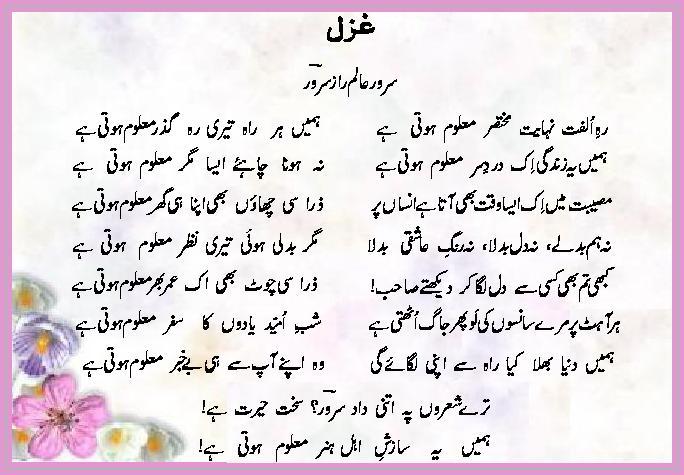 غزل
سرور عالم راز سرورؔ
رہِ اُلفت نہایت مختصر معلوم ہوتی ہے ہمیں ہر راہ تیری رہ گذر معلوم ہوتی ہے
ہمیں یہ زندگی اِک دردِ سر معلوم ہوتی ہے نہ ہونا چاہئے ایسا مگر معلوم ہوتی ہے
مصیبت میں اِک ایسا وقت بھی آتا ہے انساں پر ذرا سی چھاؤں بھی اپنا ہی گھر معلوم ہوتی ہے
نہ ہم بدلے، نہ دل بدلا، نہ رنگِ عاشقی بدلا مگر بدلی ہوئی تیری نظر معلوم ہوتی ہے
کبھی تم بھی کسی سے دل لگا کر دیکھتے صاحب! ذرا سی چوٹ بھی اک عمر بھر معلوم ہوتی ہے
ہر آہٹ پر مرے سانسوں کی لَو پھر جاگ اُٹھتی ہے شبِ اُمّید یادوں کا سفر معلوم ہوتی ہے
ہمیں دنیا بھلا کیا راہ سے اپنی لگائے گی وہ اپنے آپ سے ہی بے خبر معلوم ہوتی ہے
ترے شعروں پہ اتنی داد سرورؔ؟ سخت حیرت ہے!
ہمیں یہ سازشِ اہلِ ہنر معلوم ہوتی ہے!